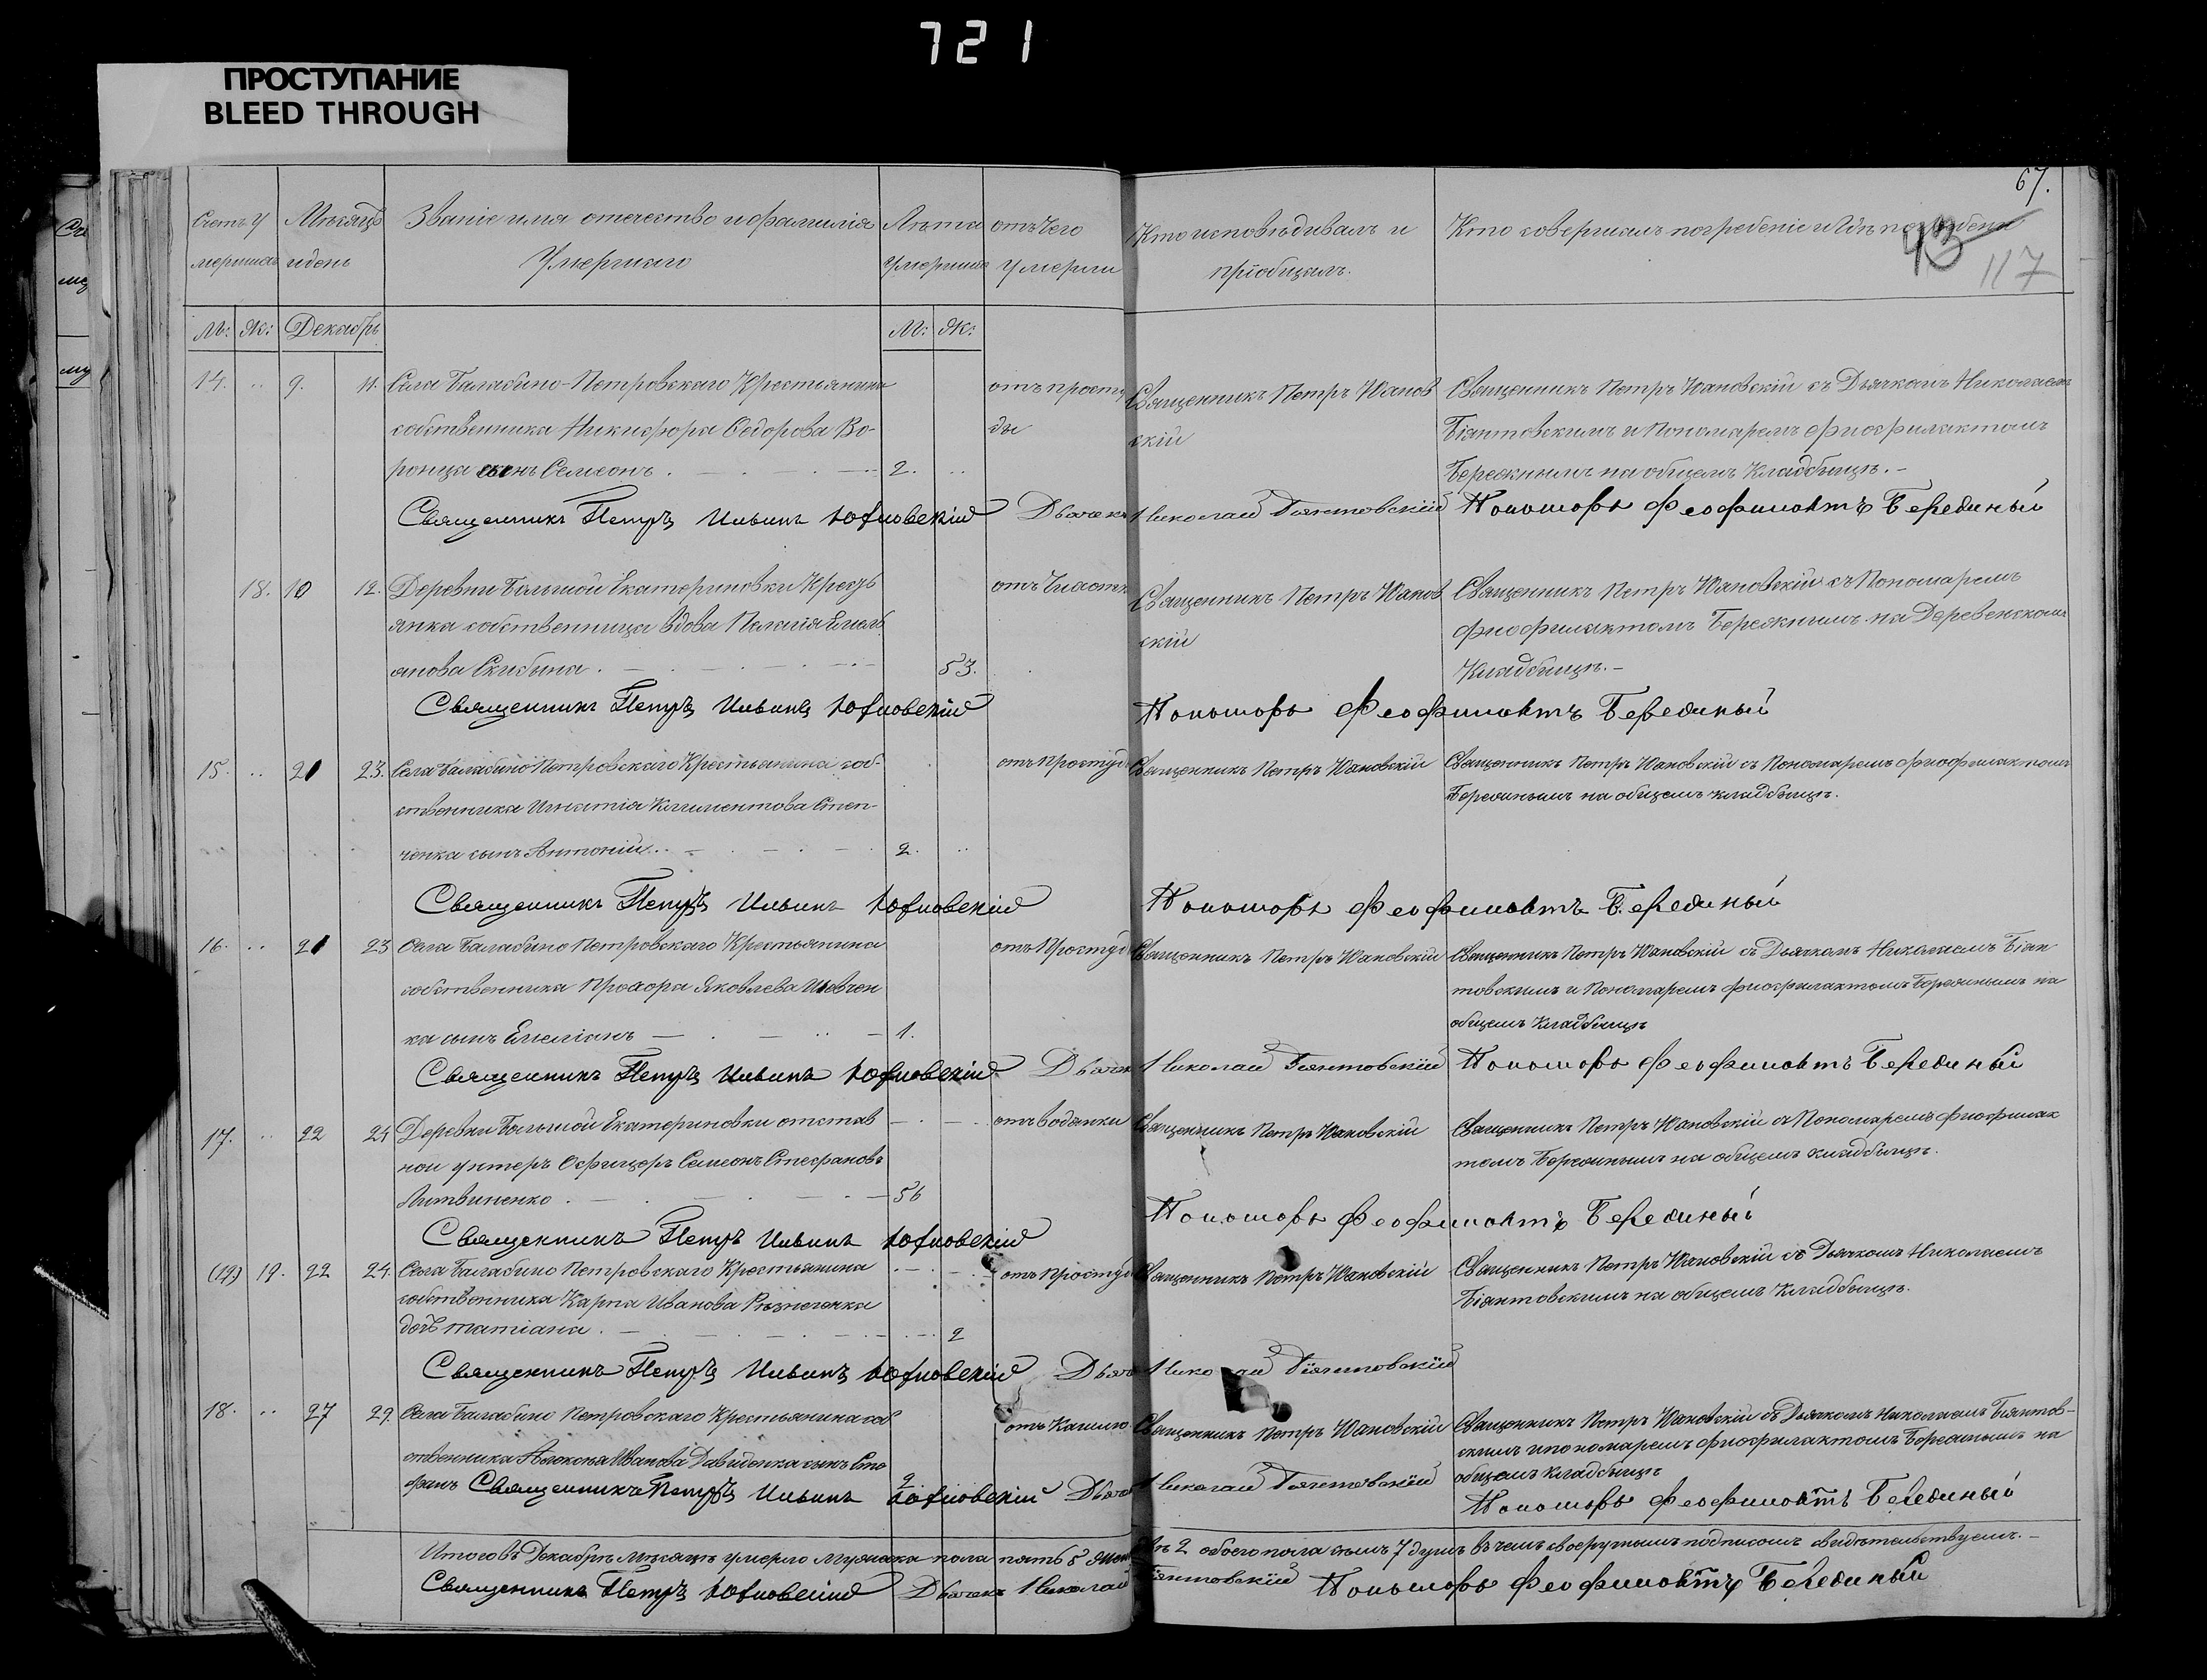 721
ПРОСТУПАНИЕ
BLEED THROUGH
67.
43
117
Счетъ у
мершихъ
Мѣсяцъ
и день
Званіе имя отечество и фамилія
Умершаго
Лѣта
Умершаго
отъ Чего
Умерли
Кто исповѣдывалъ и
пріобщалъ.
Кто совершалъ погребеніе и Гдѣ погребены
М: Ж: Декабрь М: Ж:
14. .. 9. 11. Села Балабино-Петровскаго Крестьянина
собственника Никифора Ѳедорова Во-
ронца сынъ Семеонъ. 2. ..
отъ просту
ды
Священникъ Петръ Юханов
скій
Священникъ Петръ Юхановскій съ Дьячкомъ Николаемъ
Біянтовскимъ и Пономаремъ Фиофилактомъ
Бережнымъ на общемъ Кладбищѣ.-
Священникъ Петръ Ильинъ Юхновскій Дьячекъ Николай Біянтовскій Пономарь Феофилактъ Бережный
18. 10 12. Деревни Большой Екатериновки Кресть
янка собственница вдова Пелагія Емель
янова Скибина. 53.
отъ Чахотк
Священникъ Петръ Юханов
скій
Священникъ Петръ Юхановскій съ Пономаремъ
Фиофилактомъ Бережнымъ на Деревенскомъ
Кладбищѣ.-
Священникъ Петръ Ильинъ Юхновскій Пономарь Феофилактъ Бережный
15. .. 21 23. Села Балабино Петровскаго Крестьянина соб-
ственника Игнатія Климентова Степ-
ченка сынъ Антоній. 2. ..
отъ Простуд
Священникъ Петръ Юхановскій
Священникъ Петръ Юхановскій съ Пономаремъ Фиофилактомъ
Бережнымъ на общемъ кладбищѣ.
Священникъ Петръ Ильинъ Юхновскій Пономарь Феофилактъ Бережный
16. .. 21 23 Села Балабино Петровскаго Крестьянина
собственника Прохора Яковлева Шевчен
ка сынъ Емеліанъ 1.
отъ Простуд
Священникъ Петръ Юхановскій
Священникъ Петръ Юхановскій съ Дьячкомъ Николаемъ Біян
товскимъ и Пономаремъ Фиофилактомъ Бережнымъ на
общемъ Кладбищѣ
Священникъ Петръ Ильинъ Юхновскій Дьячек Николай Біянтовскій Пономарь Феофилактъ Бережный
17. .. 22 24 Деревни Большой Екатериновки отстав
ной унтеръ Офицеръ Семеонъ Стефановъ
Литвиненко. 56
отъ водянки
Священникъ Петръ Юхановскій
Священникъ Петръ Юхановскій съ Пономаремъ Фиофилак
томъ Бережнымъ на общемъ кладбищѣ.
Священникъ Петръ Ильинъ Юхновскій Пономарь Феофилактъ Бережный
(19) 19. 22 24. Села Балабино Петровскаго Крестьянина
собственника Карпа Иванова Рѣзниченка
дочь Татіана. 2
отъ Простуд
Священникъ Петръ Юхановскій
Священникъ Петръ Юхановскій съ Дьячкомъ Николаемъ
Біянтовскимъ на общемъ Кладбищѣ.
Священникъ Петръ Ильинъ Юхновскій Дьяч Николай Біянтовскій
18. .. 27 29. Села Балабино Петровскаго Крестьянина соб
ственника Алексѣя Иванова Давиденка сынъ Сте
фанъ 2
отъ Кашлю
Священникъ Петръ Юхановскій
Священникъ Петръ Юхановскій съ Дьячкомъ Николаемъ Біянтов-
скимъ и пономаремъ Фиофилактомъ Бережнымъ на
общемъ Кладбищѣ
Священникъ Петръ Ильинъ Юхновскій Дьяч Николай Біянтовскій Пономарь Феофилактъ Бережный
Итого въ Декабрѣ Мѣсяцѣ умерло Мужеска пола пять 5 2 обоего пола семь 7 душъ въ чемъ своеручнымъ подписомъ свидѣтельствуемъ.-
Священникъ Петръ Юхновскій Дьячекъ Николай Біянтовскій Пономарь Феофилактъ Бережный